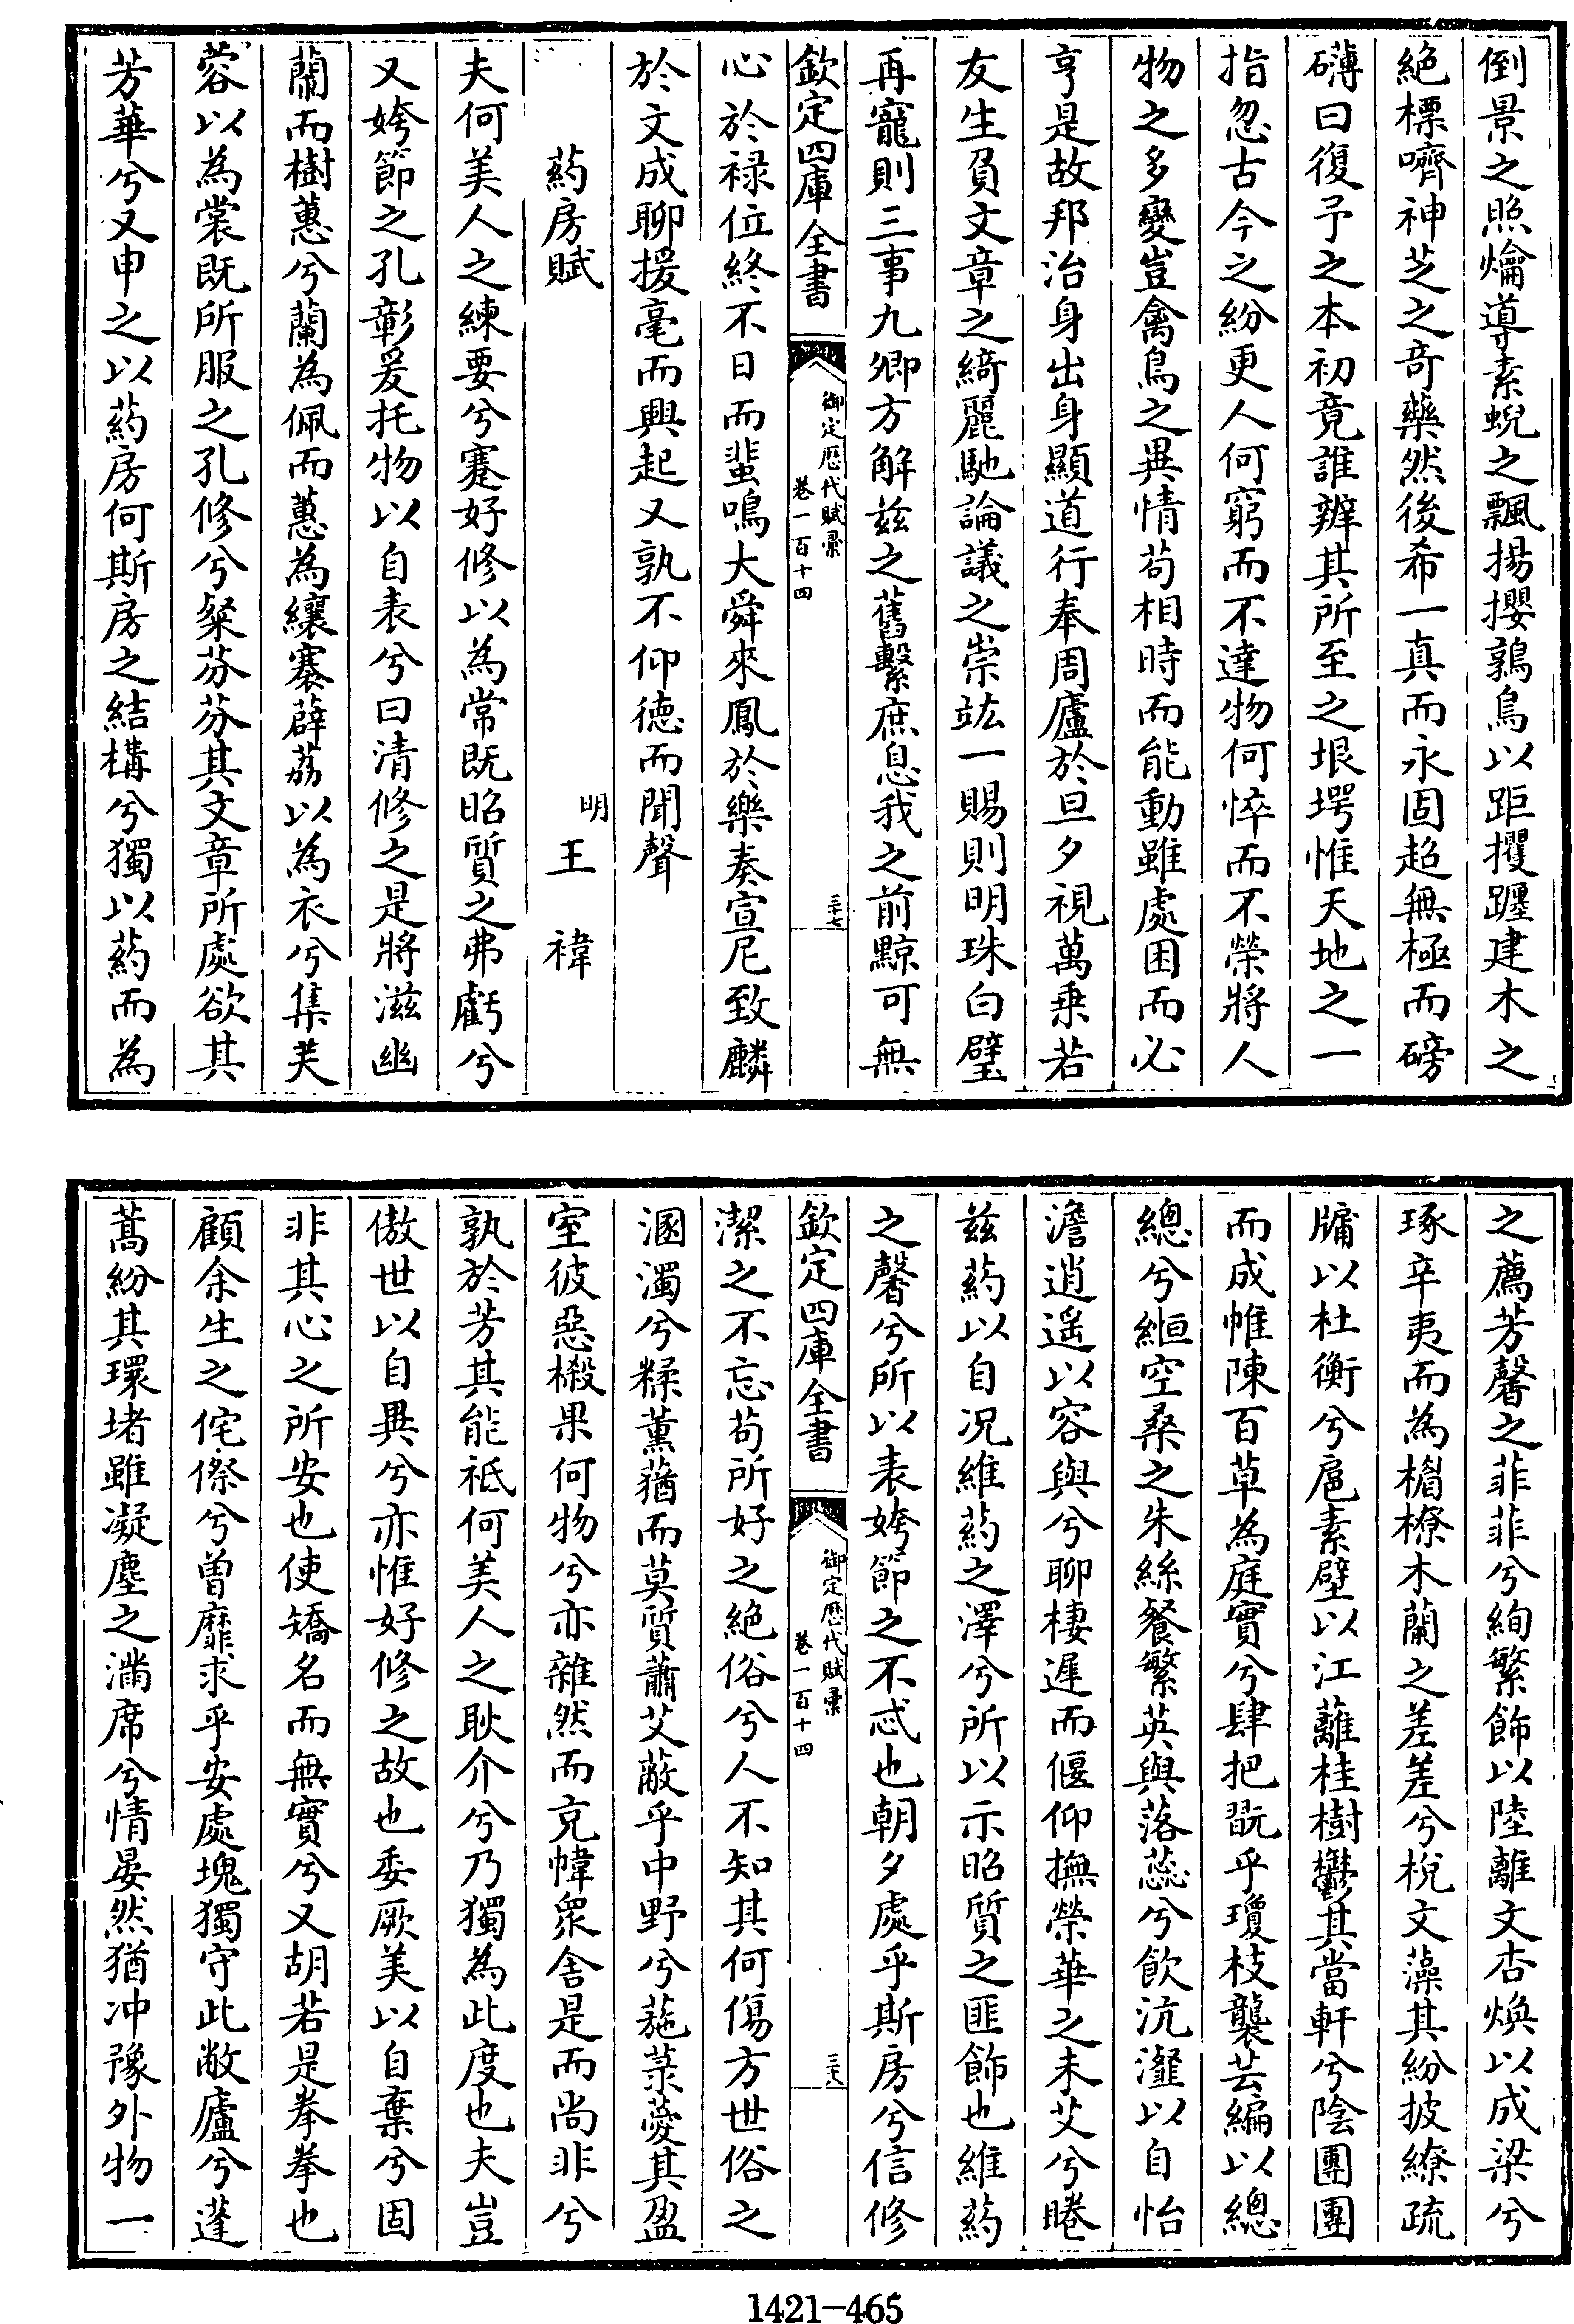 倒景之照爚導素蜺之飄揚攖鶉鳥以距攫躔建木之
絶標嚌神芝之奇藥然後希一真而永固超無極而磅
礴曰復予之本初竟誰辨其所至之垠堮惟天地之一
指忽古今之紛更人何窮而不達物何悴而不榮將人
物之多變豈禽鳥之異情苟相時而能動雖處困而必
亨是故邦治身出身顯道行奉周廬於旦夕視萬乘若
友生負文章之綺麗馳論議之崇竑一賜則明珠白璧
再寵則三事九卿方解兹之舊繫庶息我之前黥可無
欽定四庫全書
御定歴代賦彚
卷一百十四
三十七
心於禄位終不日而蜚鳴大舜來鳳於樂奏宣尼致麟
於文成聊援毫而興起又孰不仰德而聞聲
葯房賦
明王褘
夫何美人之練要兮蹇好修以為常既昭質之弗虧兮
又姱節之孔彰爰托物以自表兮曰清修之是將滋幽
蘭而樹蕙兮蘭為佩而蕙為纕搴薜荔以為衣兮集芙
蓉以為裳既所服之孔修兮粲芬芬其文章所處欲其
芳華兮又申之以葯房何斯房之結構兮獨以葯而為
之薦芳馨之菲菲兮絢繁飾以陸離文杏煥以成梁兮
琢辛夷而為楣橑木蘭之差差兮梲文藻其紛披繚疏
牗以杜衡兮扈素壁以江蘺桂樹鬱其當軒兮陰團團
而成帷陳百草為庭實兮肆把翫乎瓊枝襲芸編以總
總兮緪空桑之朱絲餐繁英與落蕊兮飲沆瀣以自怡
澹逍遥以容與兮聊棲遲而偃仰撫榮華之未艾兮睠
兹葯以自况維葯之澤兮所以示昭質之匪飾也維葯
之馨兮所以表姱節之不忒也朝夕處乎斯房兮信修
欽定四庫全書
御定歴代賦彚
卷一百十四
三十八
潔之不忘苟所好之絶俗兮人不知其何傷方世俗之
溷濁兮糅薰蕕而莫質蕭艾蔽乎中野兮葹菉薆其盈
室彼惡樧果何物兮亦雜然而充幃衆舍是而尚非兮
孰於芳其能祗何美人之耿介兮乃獨為此度也夫豈
傲世以自異兮亦惟好修之故也委厥美以自棄兮固
非其心之所安也使矯名而無實兮又胡若是拳拳也
顧余生之侘傺兮曾靡求乎安處塊獨守此敝廬兮蓬
蒿紛其環堵雖凝塵之滿席兮情晏然猶冲豫外物一
1421-465